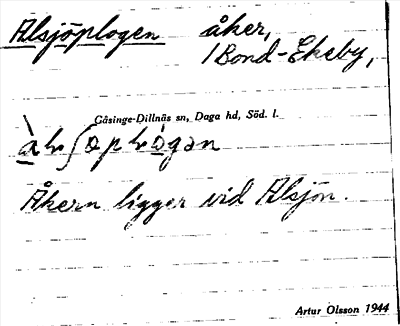 Alsjöplogen åker,
Bond-Ekeby,
Gåsinge-Dillnäs sn, Daga hd, Söd. l.
Åkern ligger vid Alsjön.
Artur Olsson 1944